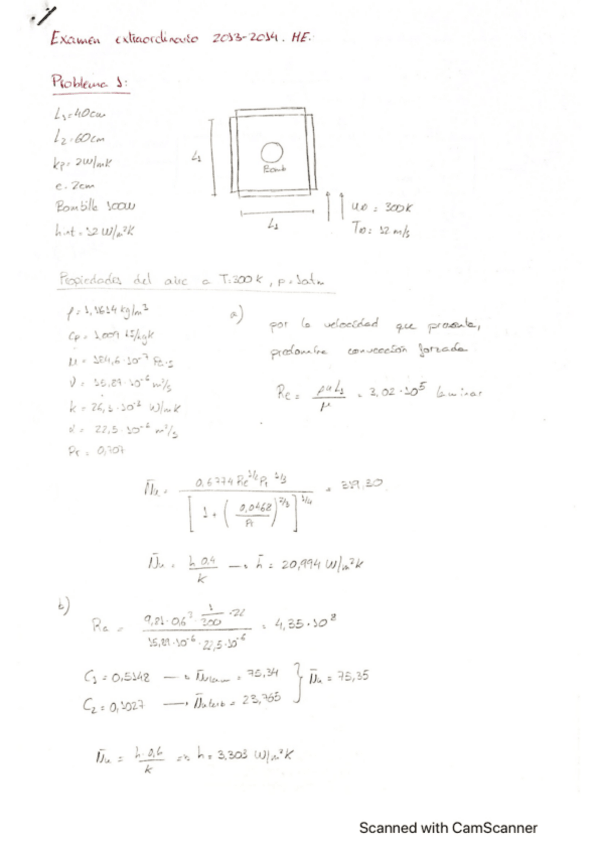 Examen extraordinario 2013-2014. HE.
Problema 1:
L1 = 40cm
L2 = 60cm
kp = 2W/mK
e = 2cm
Bombilla 100W
hint = 12 W/m²K
L1
Bomb
L1
u∞ = 300K
T∞ = 12 m/s
Propiedades del aire a T=300K, p=1atm
ρ = 1,1614 kg/m³
Cp = 1,007 kJ/kgK
μ = 184,6·10⁻⁷ Pa·s
ν = 15,89·10⁻⁶ m²/s
k = 26,3·10⁻³ W/mK
α = 22,5·10⁻⁶ m²/s
Pr = 0,707
a) por la velocidad que presenta,
predomina convección forzada
Re = ρuL1/μ = 3,02·10⁵ laminar
N̄u = 0,6774 Re^1/2 Pr^1/3 / [1 + (0,0468/Pr)^2/3]^1/4 = 319,30
N̄u = h 0,4/k → h̄ = 20,994 W/m²K
b) Ra = 9,81·0,6³·1/300·21 / 15,89·10⁻⁶·22,5·10⁻⁶ = 4,35·10⁸
C1 = 0,5148 → N̄ulam = 75,34
C2 = 0,1027 → N̄uturb = 23,765
} N̄u = 75,35
N̄u = h·0,6/k ⇒ h = 3,303 W/m²K
Scanned with CamScanner